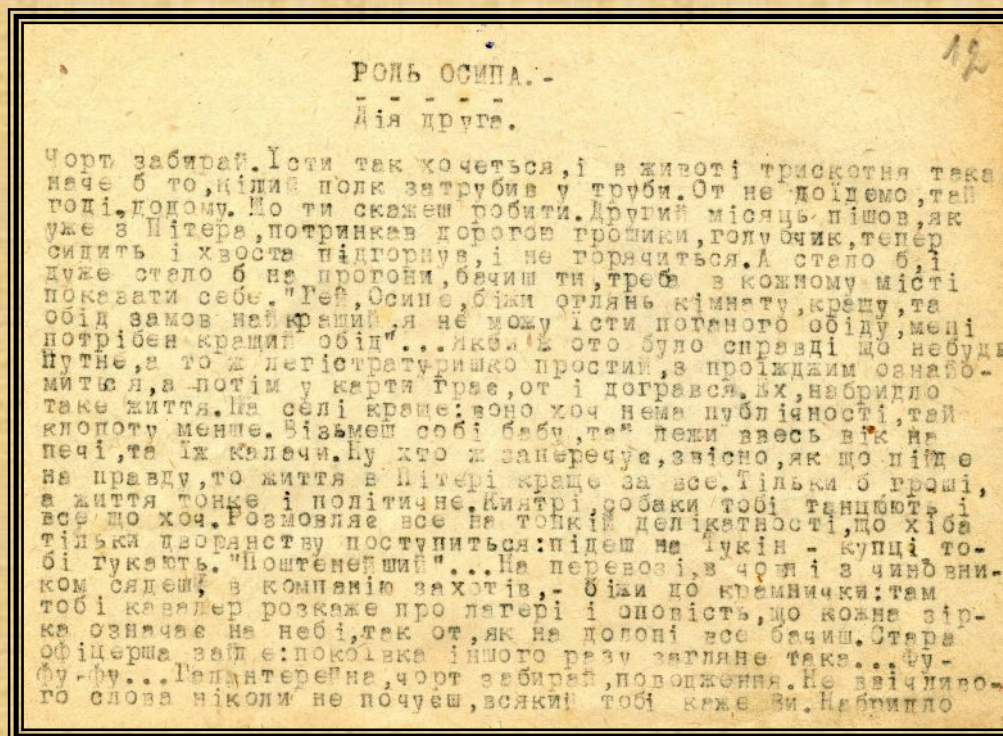 12
РОЛЬ ОСИПА.-
- - - - -
Дія друга.
Чорт забирай.Їсти так хочеться,і в животі трискотня така
наче б то,цілий полк затрубив у труби.От не доїдемо,тай
годі,додому.Що ти скажеш робити.Другий місяць пішов,як
уже з Пітера,потринкав дорогою грошики,голубчик,тепер
сидить і хвоста підгорнув,і не горячиться.А стало б,і
дуже стало б на прогони,бачиш ти,треба в кожному місті
показати себе."Гей,Осипе,біжи оглянь кімнату,кращу,та
обід замов найкращий,я не можу їсти поганого обіду,мені
потрібен кращий обід"...Якби ж ото було справді що небудь
путне,а то ж легістратуришко простий,з проїжджим ознайо-
миться,а потім у карти грає,от і догрався.Ех,набридло
таке життя.На селі краще:воно хоч нема публічності,тай
клопоту менше.Візьмеш собі бабу,тай лежи ввесь вік на
печі,та їж калачи.Ну хто ж заперечує,звісно,як що піде
на правду,то життя в Пітері краще за все.Тільки б гроші,
а життя тонке і політичне.Киятрі,собаки тобі танцюють і
все що хоч.Розмовляє все на тонкій делікатності,що хіба
тільки дворянству поступиться:підеш на Щукін - купці то-
бі гукають."Поштенейший"...На перевозі,в човні з чиновни-
ком сядеш; в компанію захотів,- біжи до крамнички:там
тобі кавалер розкаже про лагері і оповість,що кожна зір-
ка означає на небі,так от,як на долоні все бачиш.Стара
офіцерша зайде:покоївка іншого разу загляне така...Фу-
фу-фу...Галантерейна,чорт забирай,поводження.Не ввічливо-
го слова ніколи не почуєш,всякий тобі каже Ви.Набридло